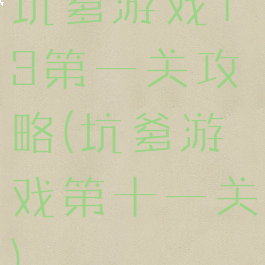 坑爹游戏1
3第一关攻
略(坑爹游
戏第十一关
)